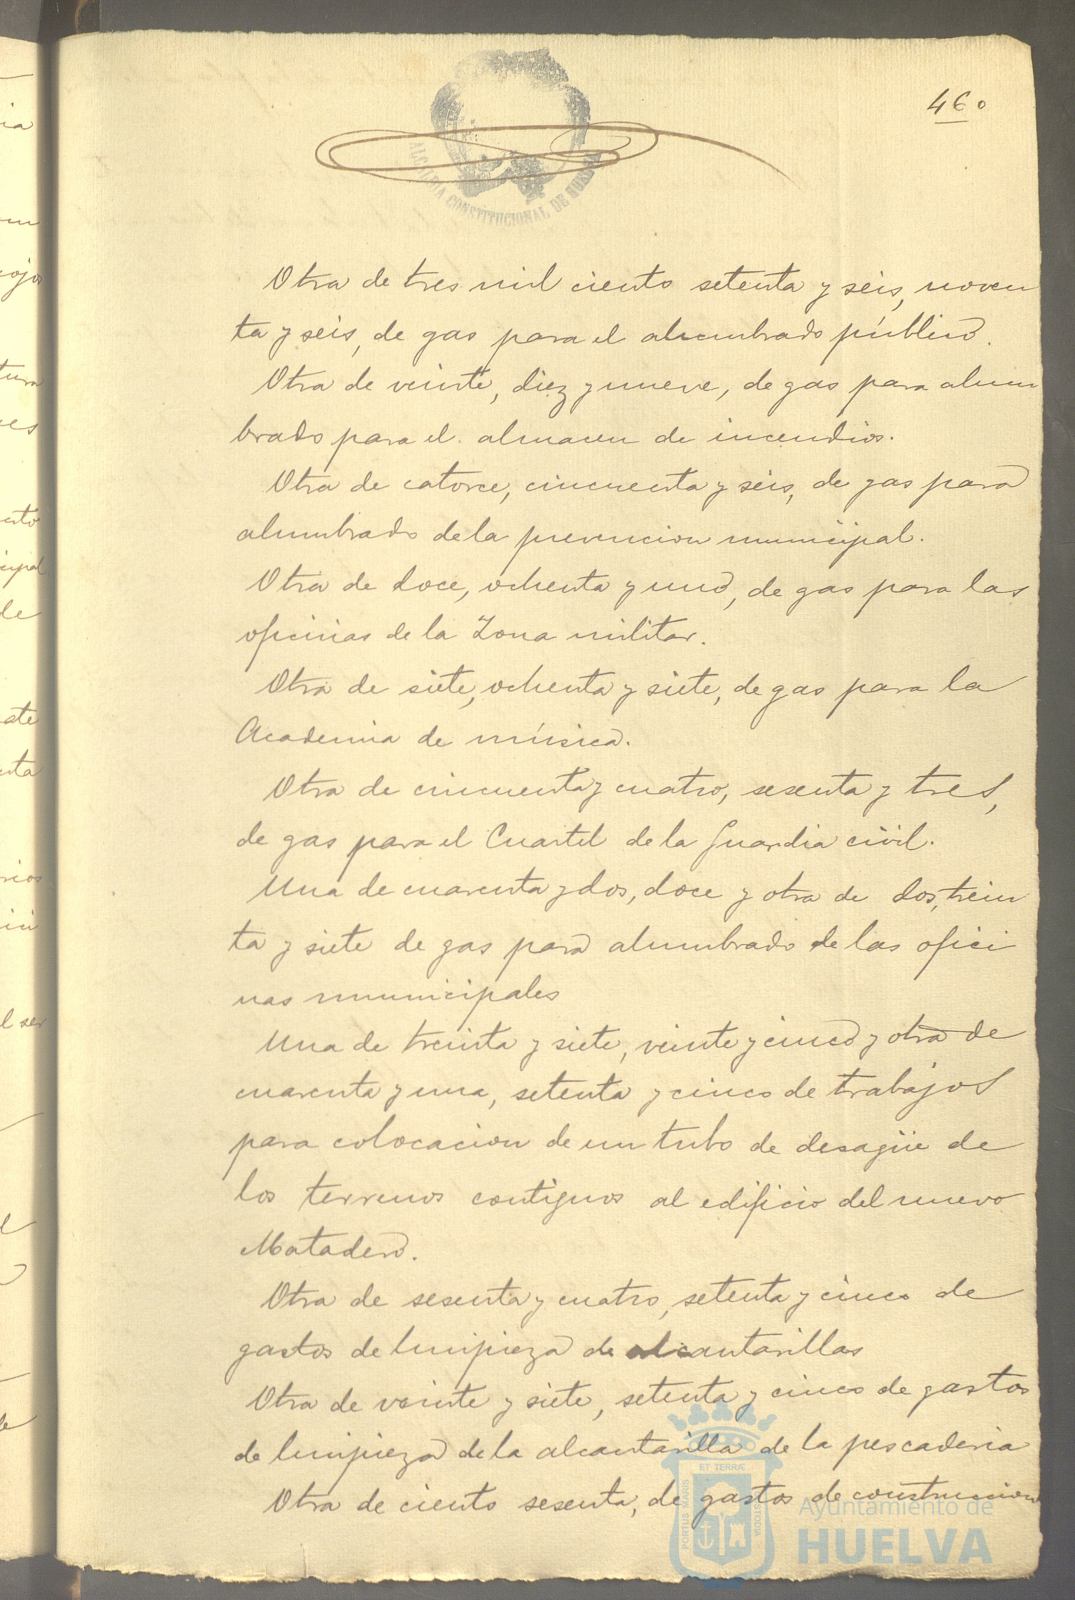 460
ALCALDIA CONSTITUCIONAL DE HUELVA
Otra de tres mil ciento setenta y seis, noven
ta y seis, de gas para el alumbrado público.
Otra de veinte, diez y nueve, de gas para alum
brado para el almacen de incendios.
Otra de catorce, cincuenta y seis, de gas para
alumbrado de la prevencion municipal.
Otra de doce, ochenta y uno, de gas para las
oficinas de la Zona militar.
Otra de siete, ochenta y siete, de gas para la
Academia de música.
Otra de cincuenta y cuatro, sesenta y tres,
de gas para el Cuartel de la Guardia civil.
Una de cuarenta y dos, doce y otra de dos, trein
ta y siete de gas para alumbrado de las ofici
nas municipales
Una de treinta y siete, veinte y cinco y otra de
cuarenta y una, setenta y cinco de trabajos
para colocacion de un tubo de desagüe de
los terrenos contiguos al edificio del nuevo
Matadero.
Otra de sesenta y cuatro, setenta y cinco de
gastos de limpieza de alcantarillas
Otra de veinte y siete, setenta y cinco de gastos
de limpieza de la alcantarilla de la pescaderia
Otra de ciento sesenta, de gastos de construccion
ET TERRÆ
PORTUS MARIS
CUSTODIA
Ayuntamiento de
HUELVA